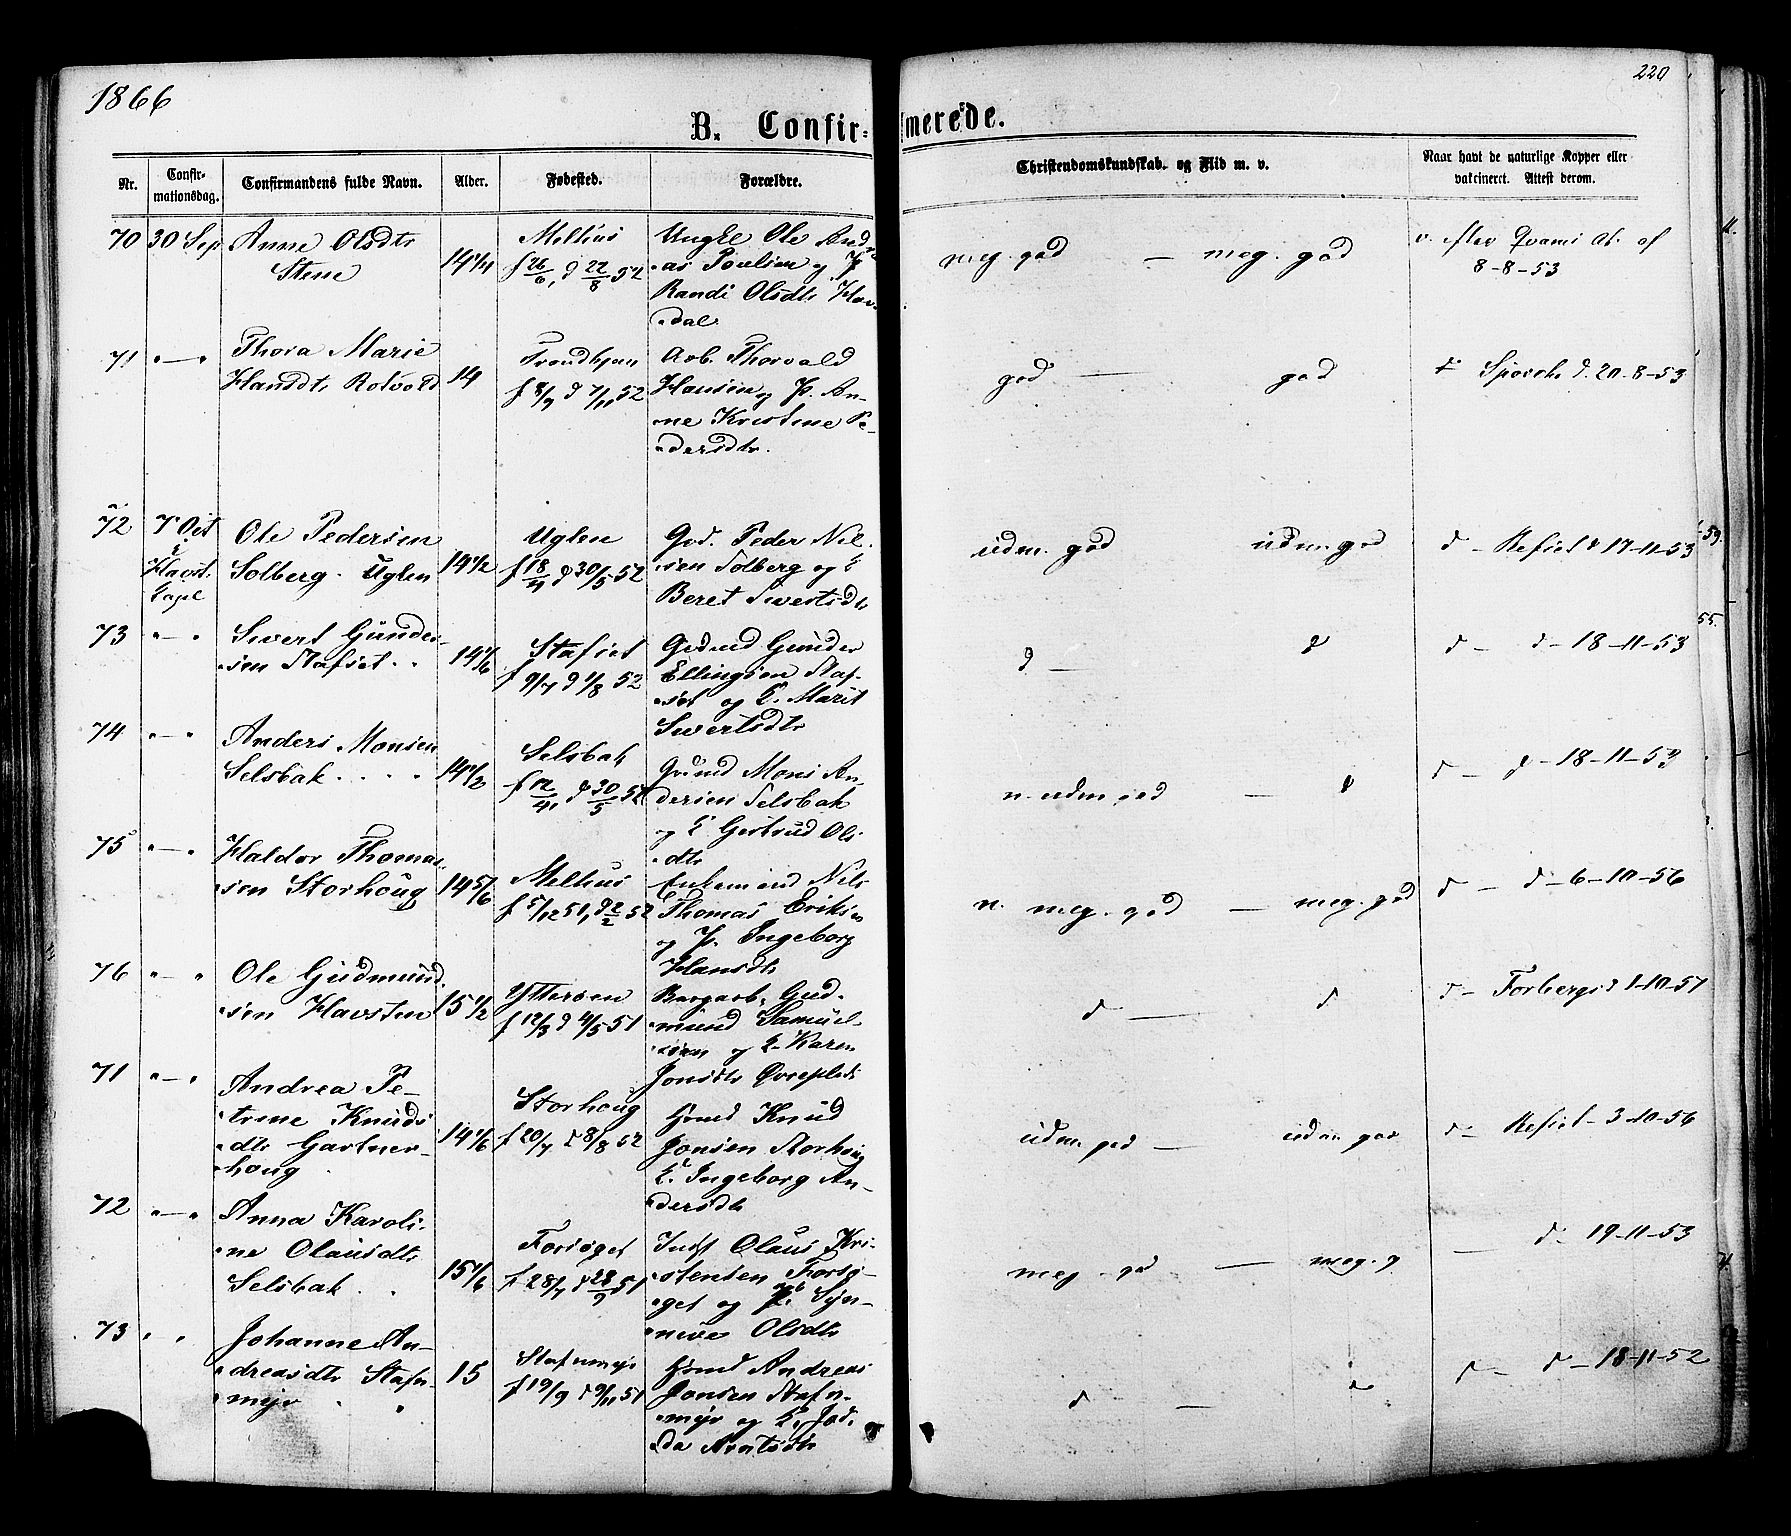 1866
220
B. Confir-merede.
Nr. Confir-mationsdag. Confirmandens fulde Navn. Alder. Fødested. Forældre. Christendomskundskab og Flid m. v. Naar havt de naturlige Kopper eller vakcineret. Attest derom.
70 30 Sep Anne Olsdtr Stene 14 1/4 Melhus f 26/6, d 22/8 52
Ungkl Ole And
as Poulsen og P
Randi Olsdtr Hav
dal
meg. god — meg. god
v. efter Qvams At. af
8-8-53
71 "—" Thora Marie
Hansdtr Rotvold 14 Trondhjem
f 8/9 d 7/11 52
Arb. Thorvald
Hansen og P. An-
ne Kristine Pe-
dersdtr.
god — god
Sporck d. 20-8-53
72 7 Oct Ole Pedersen
Havst. Kapel Solberg. Uglen 14 1/2 Uglen
f 18/4 d 30/5 52
Gbd. Peder Nil-
sen Solberg og E
Beret Sivertsdtr
udm. god udm. god
d - Refset d 17-11-53
59
73 "—" Sivert Gunder-
sen Stafset 14 1/6 Stafset
f 9/7 d 1/8 52
Gdmd Gunder
Ellingsen Staf-
set og E. Marit
Sivertsdtr
d — d
d - d - 18-11-53
55.
74 "—" Anders Monsen
Selsbak 14 1/2 Selsbak
f 12/4, d 30/5 52
Grdmd Mons An-
dersen Selsbak
og E Gertrud Ols
dtr
n. udm god — d
d - d - 18-11-53
75 "—" Haldor Thomas-
sen Storhoug 14 5/6 Melhus
f 5/12 51, d 2/2 52
Enkemand Nils
Thomas Eriksen
og P. Ingeborg
Hansdtr
n. meg. god — meg. god
d - d - 6-10-56
76 "—" Ole Gudmund-
sen Havsten 15 1/2 Ytterøen
f 12/3 d 4/5 51
Bergarb. Gud-
mund Samuel-
sen og E. Karen
Jonsdtr
d — d
d - Forbergs d 1-10-57
71 "—" Andrea Pe-
trine Knuds
dtr Gartner-
houg 14 1/6 Storhoug
f 20/7 d 8/8 52
Hsmd Knud
Jonsen Storhoug
E. Ingeborg An-
dersdtr
udm god — udm god
d - Refset - 3-10-56
72 "—" Anna Karoli-
ne Olausdtr
Selsbak 15 1/6 Forsøget
f 28/7 d 28/9 51
Inds Olaus Kri-
stensen Forsø-
get og P. Syn-
neve Olsdtr
meg. god — meg. g
— d - 19-11-53
73 " " Johanne An-
dreasdtr Stafn-
myr 15 Stafnmyr
f 19/9 d 9/11 51
Hsmd Andreas
Jonsen Stafn-
myr og E. Jød-
da Arntsdtr
d — d
d - d - 18-11-52